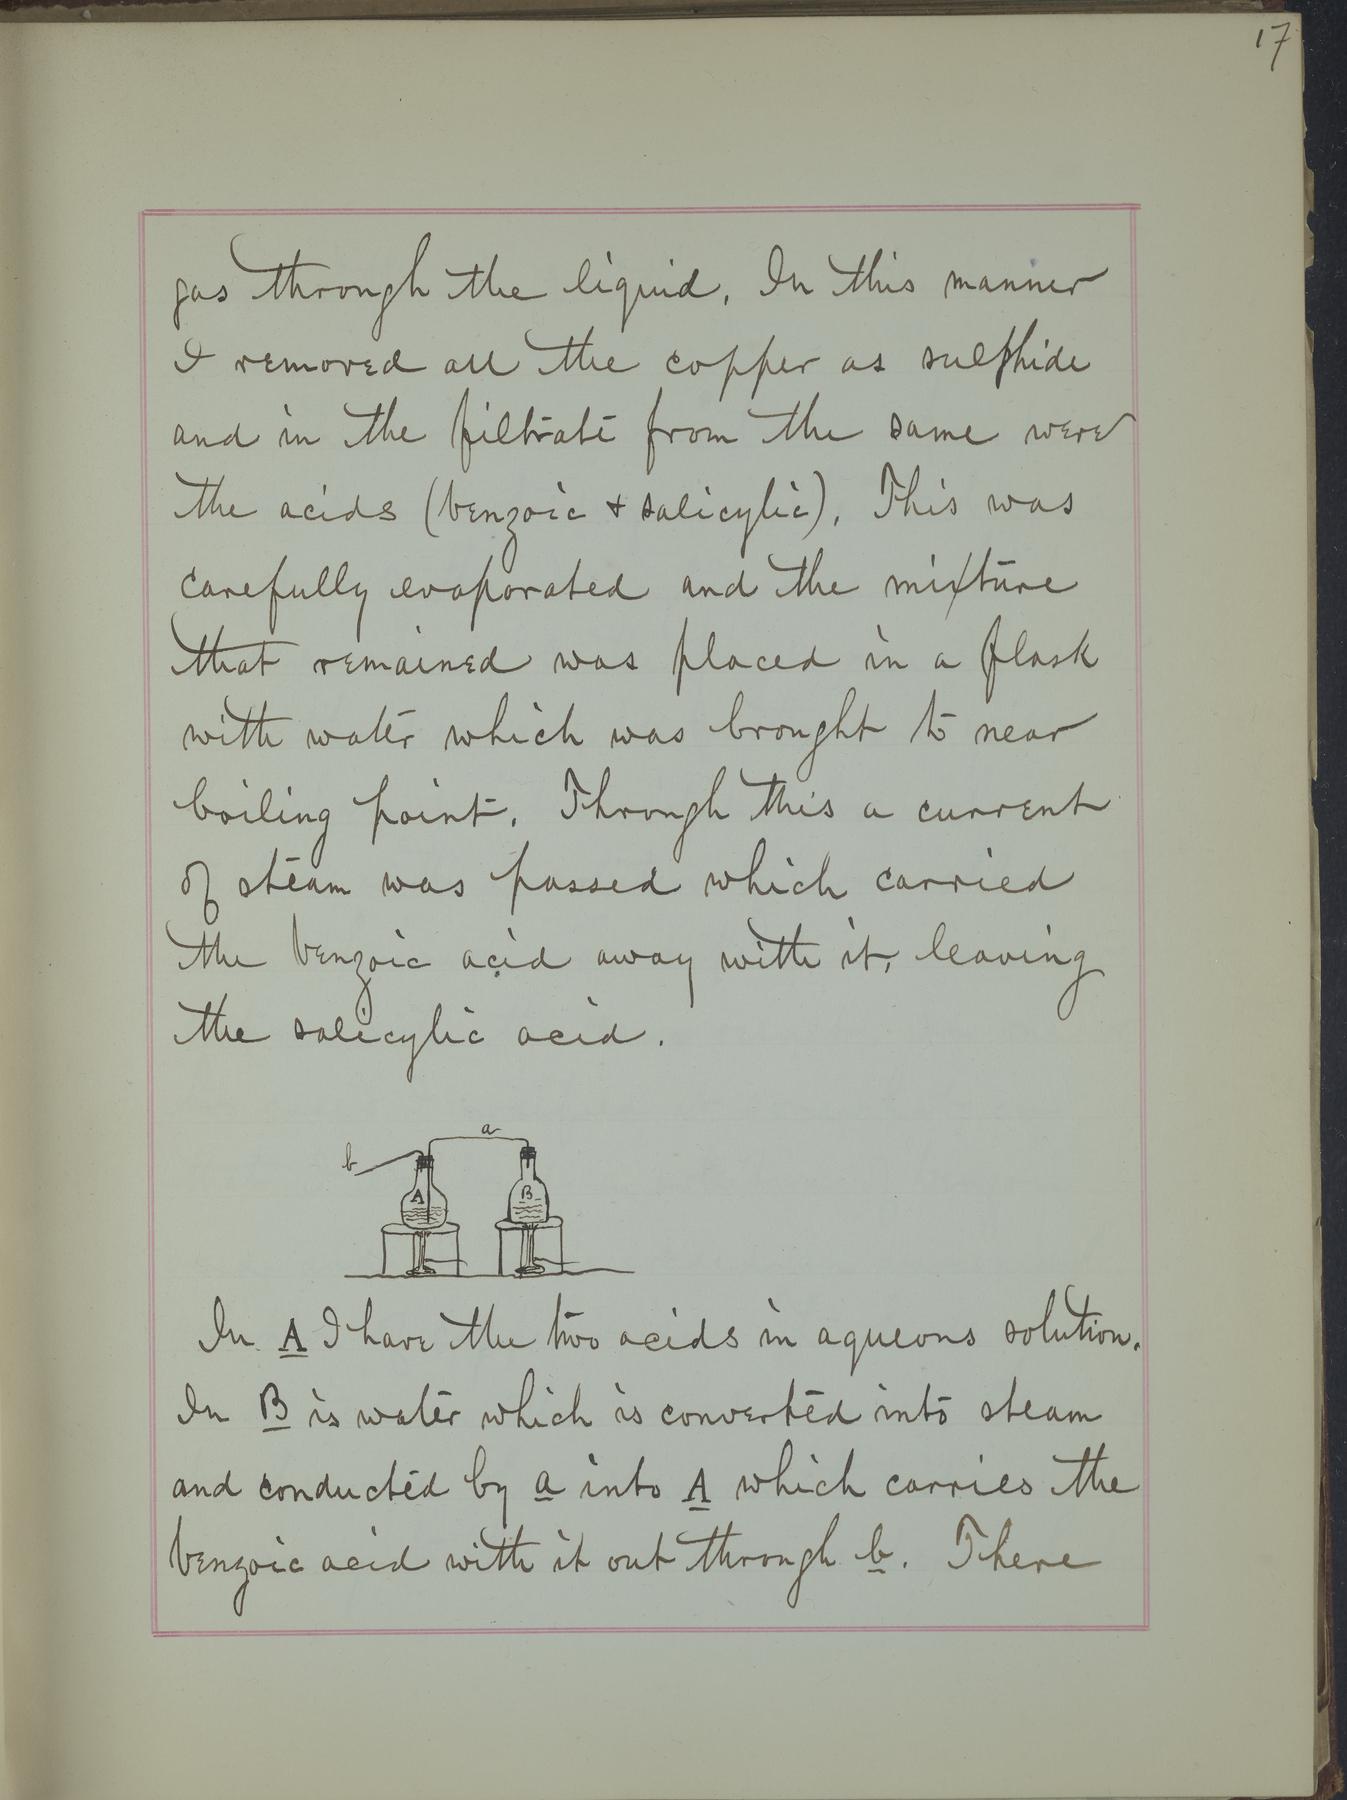 17
gas through the liquid. In this manner
I removed all the copper as sulphide
and in the filtrate from the same were
the acids (benzoic + salicylic). This was
carefully evaporated and the mixture
that remained was placed in a flask
with water which was brought to near
boiling point. Through this a current
of steam was passed which carried
the benzoic acid away with it, leaving
the salicylic acid.
a
b
A B
In A I have the two acids in aqueous solution.
In B is water which is converted into steam
and conducted by a into A which carries the
benzoic acid with it out through b. There